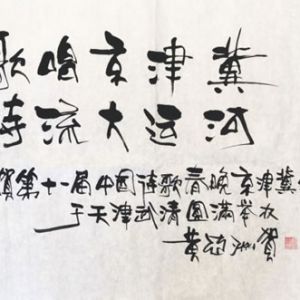 歌唱京津冀
诗流大运河
贺第十一届中国诗歌春晚京津冀
于天津武清圆满举办
黄亚洲贺